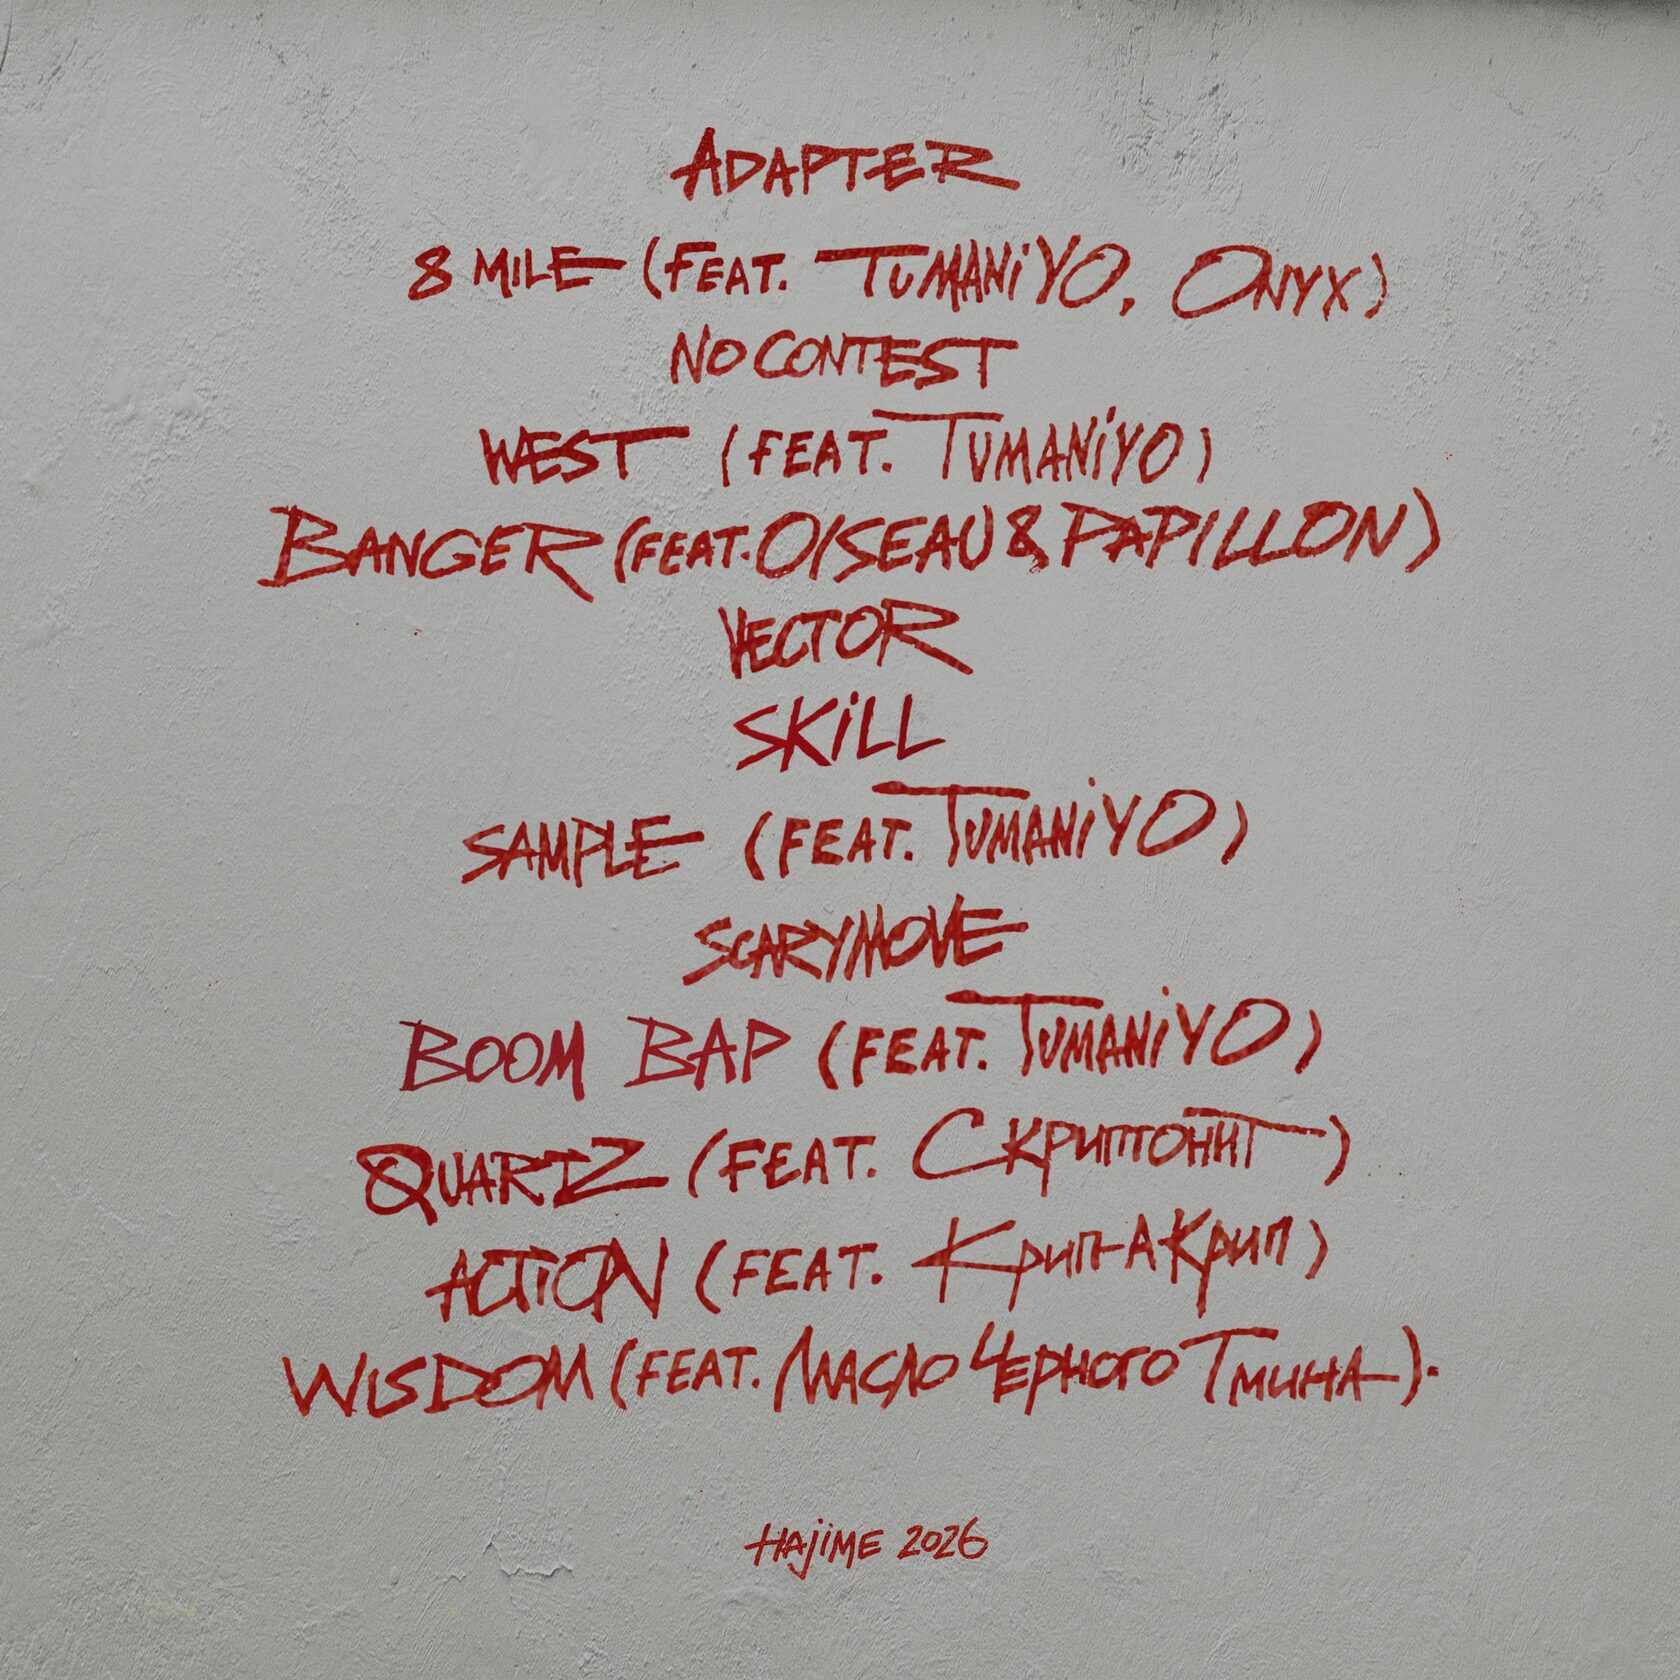 ADAPTER
8 MILE (FEAT. TUMANiYO, ONYX)
NO CONTEST
WEST (FEAT. TUMANiYO)
BANGER (FEAT. OISEAU & PAPILLON)
VECTOR
SKiLL
SAMPLE (FEAT. TUMANiYO)
SCARYMOVE
BOOM BAP (FEAT. TUMANiYO)
QUARTZ (FEAT. СКРИПТОНИТ)
ACTiON (FEAT. КРИП-А-КРИП)
WISDOM (FEAT. МАСЛО ЧЕРНОГО ТМИНА).
HAjiME 2026